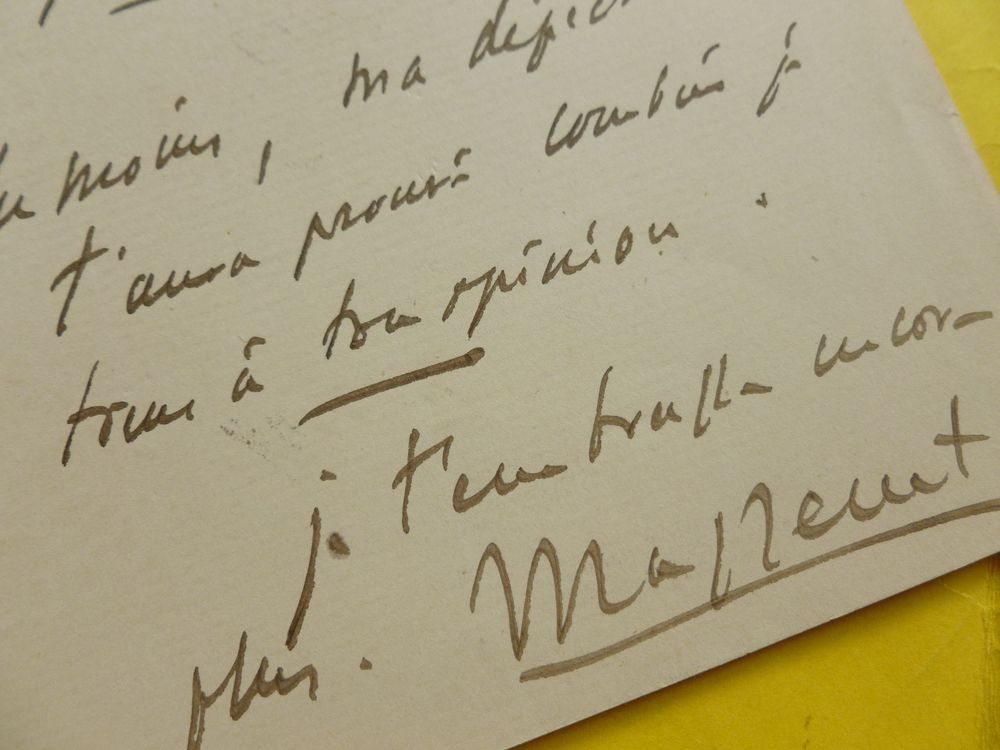 moins, ma dépêch
t'aura prouvé combien je
tiens à ton opinion.
je t'embrasse encore
plus. Massenet